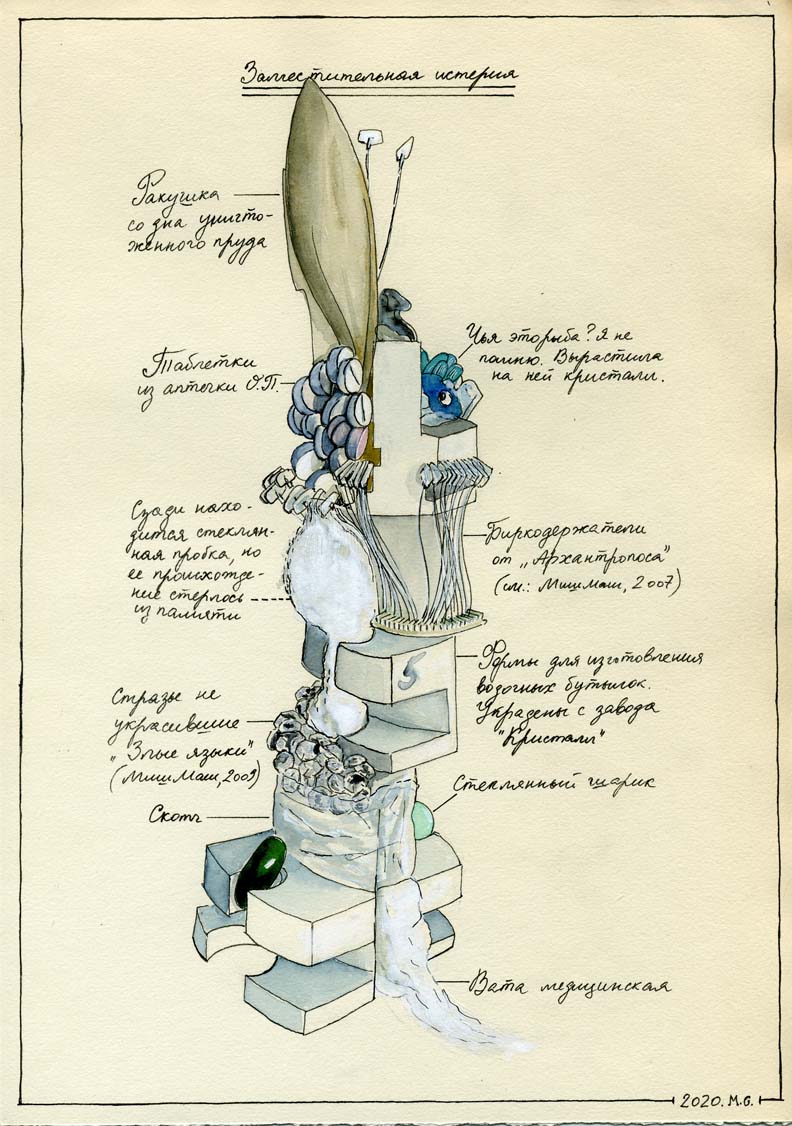 Заместительная истерия
Ракушка
со дна уничто-
женного пруда
Чья эторыба? Я не
помню. Вырастила
на ней кристалл.
Таблетки
из аптечки О.П.
Сзади нахо-
дится стеклян-
ная пробка, но
ее происхожде-
ние стерлось
из памяти
Биркодержатели
от „Архантропоса"
(см.: МишМаш, 2007)
Формы для изготовления
водочных бутылок.
Украдены с завода
"Кристалл"
5
Стразы не
украсившие
„Злые языки"
(МишМаш, 2009)
Стеклянный шарик
Скотч
Вата медицинская
2020. M.G.